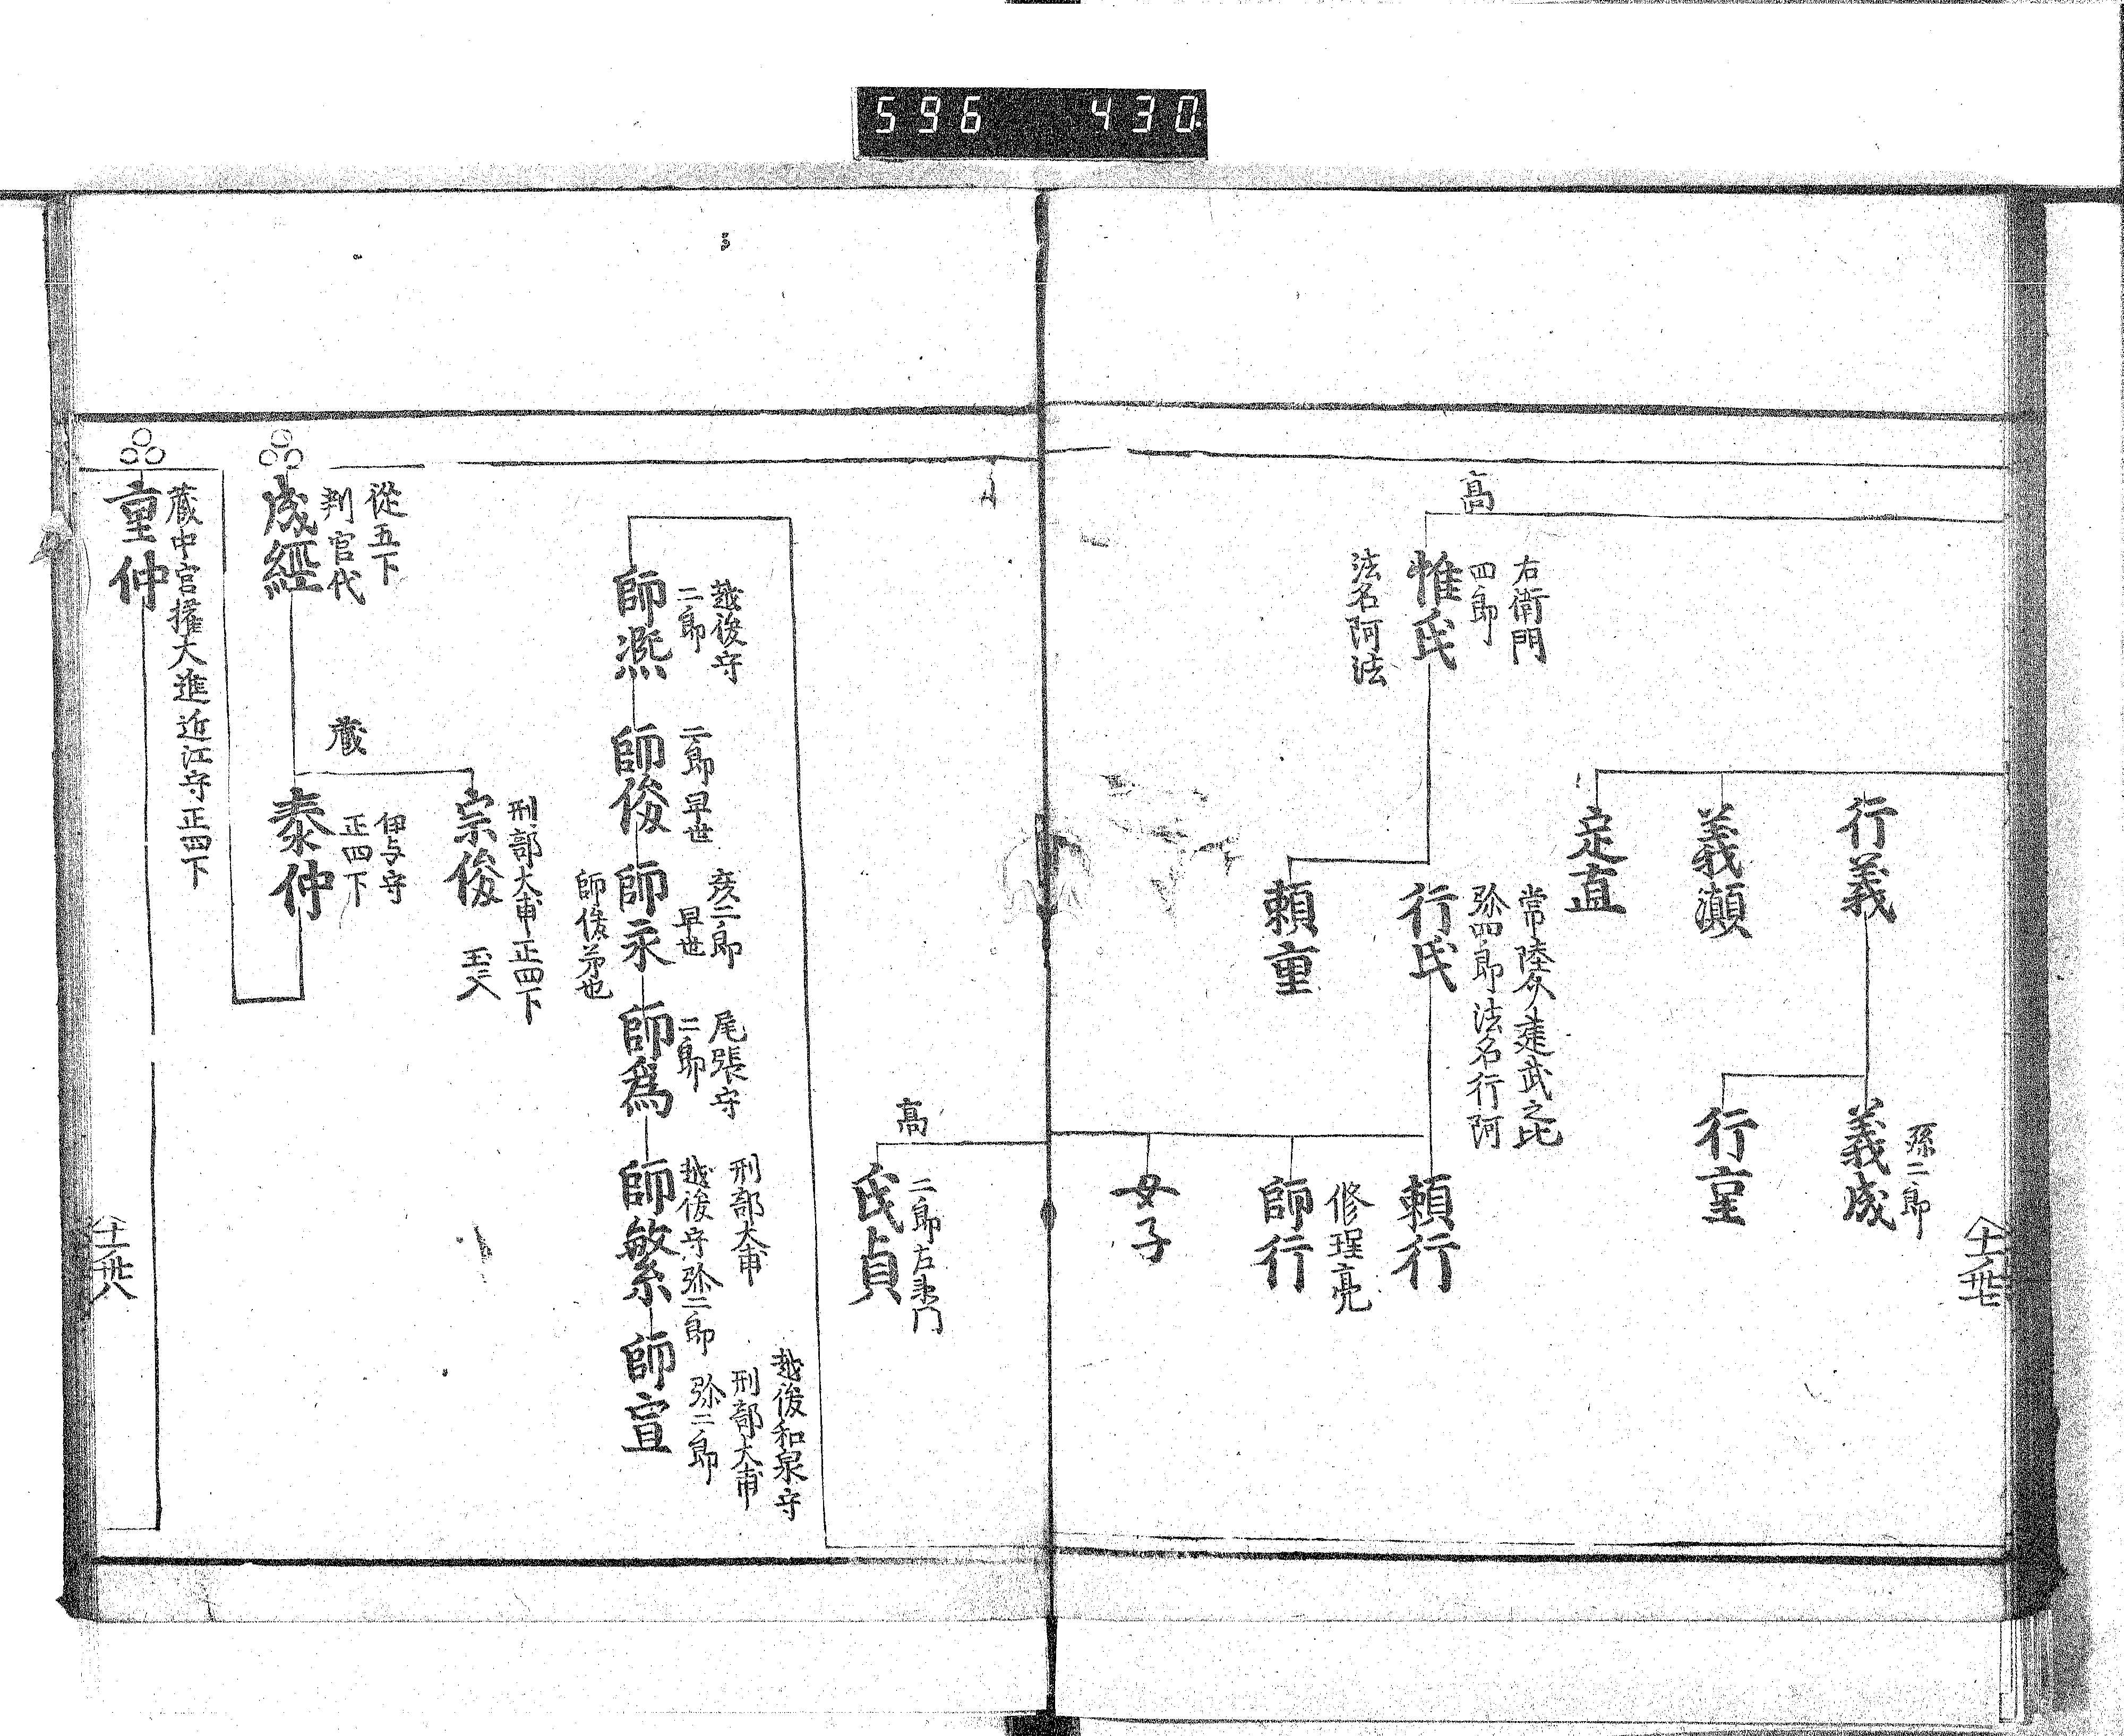 596 430
行義
孫二郎
義成
行重
義顕
定直
高
右衛門
四郎
惟氏
法名阿法
常陸介建武之比
弥四郎法名行阿
行氏
頼重
頼行
修理亮
師行
女子
高
二郎左衛門
氏貞
越後守
二郎
師凞
二郎早世
師俊
彦二郎
早世
師永
師俊弟也
尾張守
二郎
師爲
刑部大甫
越後守弥二郎
師繁
越後和泉守
刑部大甫
弥二郎
師宣
從五下
判官代
成經
蔵
刑部大甫正四下
宗俊
伊与守
正四下
泰仲
蔵中宮権大進近江守正四下
重仲